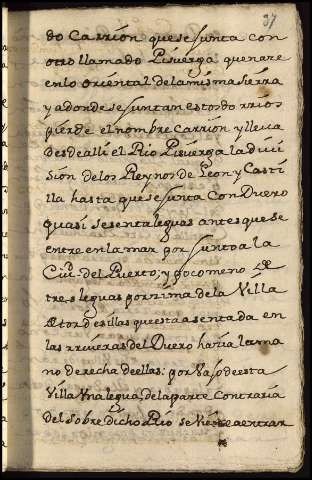 37
do Carrion que se junta con
otro llamado Pisuerga que nace
en lo oriental de la misma sierra
y adonde se juntan estos dos rrios
pierde el nombre Carrion y lleva
desde alli el Rio Pisuerga la divi
sion de los Reynos de Leon y Casti
lla hasta que se junta con Duero
quasi sesenta leguas antes que se
entre en la mar por junto a la
Ciud. del Puerto; y poco menos de
tres leguas por rima de la Villa
de tordesillas que esta asentada en
las rriveras del Duero hazia la ma
no derecha de ellas: por vajo de esta
Villa Una legua, de la parte contraria
del sobre dicho Rio se viene a entrar